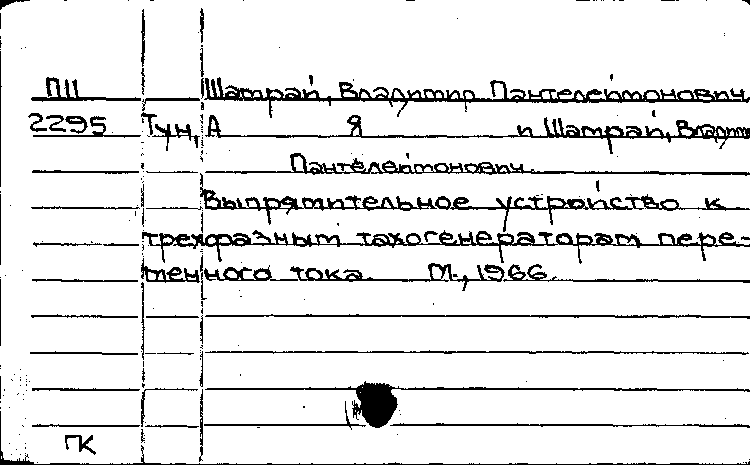 П11 Шатрай, Владимир Пантелеймонович
2295 Тун, А Я и Шатрай, Владим
Пантелеймонович.
Выпрямительное устройство к
трехфазным тахогенераторам пере-
менного тока. М., 1966.
ГК